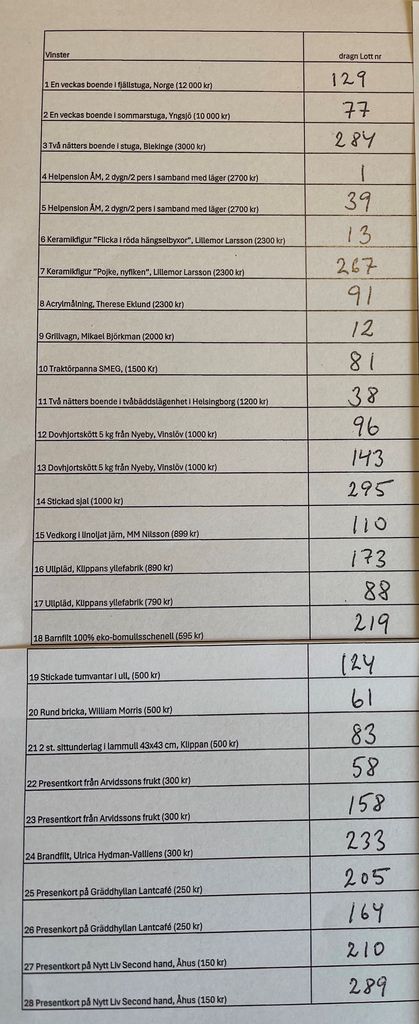 Vinster dragn Lott nr
1 En veckas boende i fjällstuga, Norge (12 000 kr) 129
2 En veckas boende i sommarstuga, Yngsjö (10 000 kr) 77
3 Två nätters boende i stuga, Blekinge (3000 kr) 284
4 Helpension ÅM, 2 dygn/2 pers i samband med läger (2700 kr) 1
5 Helpension ÅM, 2 dygn/2 pers i samband med läger (2700 kr) 39
6 Keramikfigur "Flicka i röda hängselbyxor", Lillemor Larsson (2300 kr) 13
7 Keramikfigur "Pojke, nyfiken", Lillemor Larsson (2300 kr) 267
8 Acrylmålning, Therese Eklund (2300 kr) 91
9 Grillvagn, Mikael Björkman (2000 kr) 12
10 Traktörpanna SMEG, (1500 Kr) 81
11 Två nätters boende i tvåbäddslägenhet i Helsingborg (1200 kr) 38
12 Dovhjortskött 5 kg från Nyeby, Vinslöv (1000 kr) 96
13 Dovhjortskött 5 kg från Nyeby, Vinslöv (1000 kr) 143
14 Stickad sjal (1000 kr) 295
15 Vedkorg i linoljat järn, MM Nilsson (899 kr) 110
16 Ullpläd, Klippans yllefabrik (890 kr) 173
17 Ullpläd, Klippans yllefabrik (790 kr) 88
18 Barnfilt 100% eko-bomullsschenell (595 kr) 219
19 Stickade tumvantar i ull, (500 kr) 124
20 Rund bricka, William Morris (500 kr) 61
21 2 st. sittunderlag i lammull 43x43 cm, Klippan (500 kr) 83
22 Presentkort från Arvidssons frukt (300 kr) 58
23 Presentkort från Arvidssons frukt (300 kr) 158
24 Brandfilt, Ulrica Hydman-Valliens (300 kr) 233
25 Presenkort på Gräddhyllan Lantcafé (250 kr) 205
26 Presenkort på Gräddhyllan Lantcafé (250 kr) 164
27 Presentkort på Nytt Liv Second hand, Åhus (150 kr) 210
28 Presentkort på Nytt Liv Second hand, Åhus (150 kr) 289